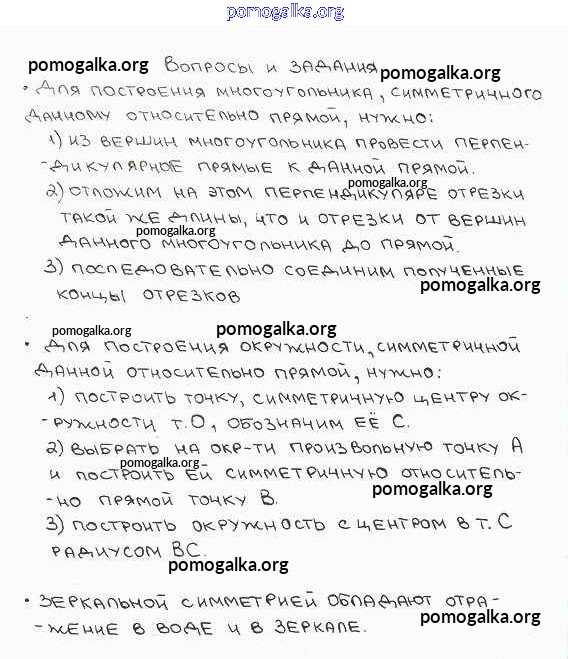 pomogalka.org
pomogalka.org Вопросы и задания pomogalka.org
• Для построения многоугольника, симметричного
данному относительно прямой, нужно:
1) из вершин многоугольника провести перпен-
-дикулярное прямые к данной прямой.
pomogalka.org
2) отложим на этом перпендикуляре отрезки
такой же длины, что и отрезки от вершин
pomogalka.org
данного многоугольника до прямой.
3) последовательно соединим полученные
pomogalka.org
концы отрезков
pomogalka.org pomogalka.org
• Для построения окружности, симметричной
данной относительно прямой, нужно:
1) построить точку, симметричную центру ок-
-ружности т.О, обозначим её С.
2) выбрать на окр-ти произвольную точку А
pomogalka.org
и построить ей симметричную относитель-
pomogalka.org
-но прямой точку В.
3) построить окружность с центром в т. С
радиусом ВС.
pomogalka.org
• Зеркальной симметрией обладают отра-
pomogalka.org
-жение в воде и в зеркале.